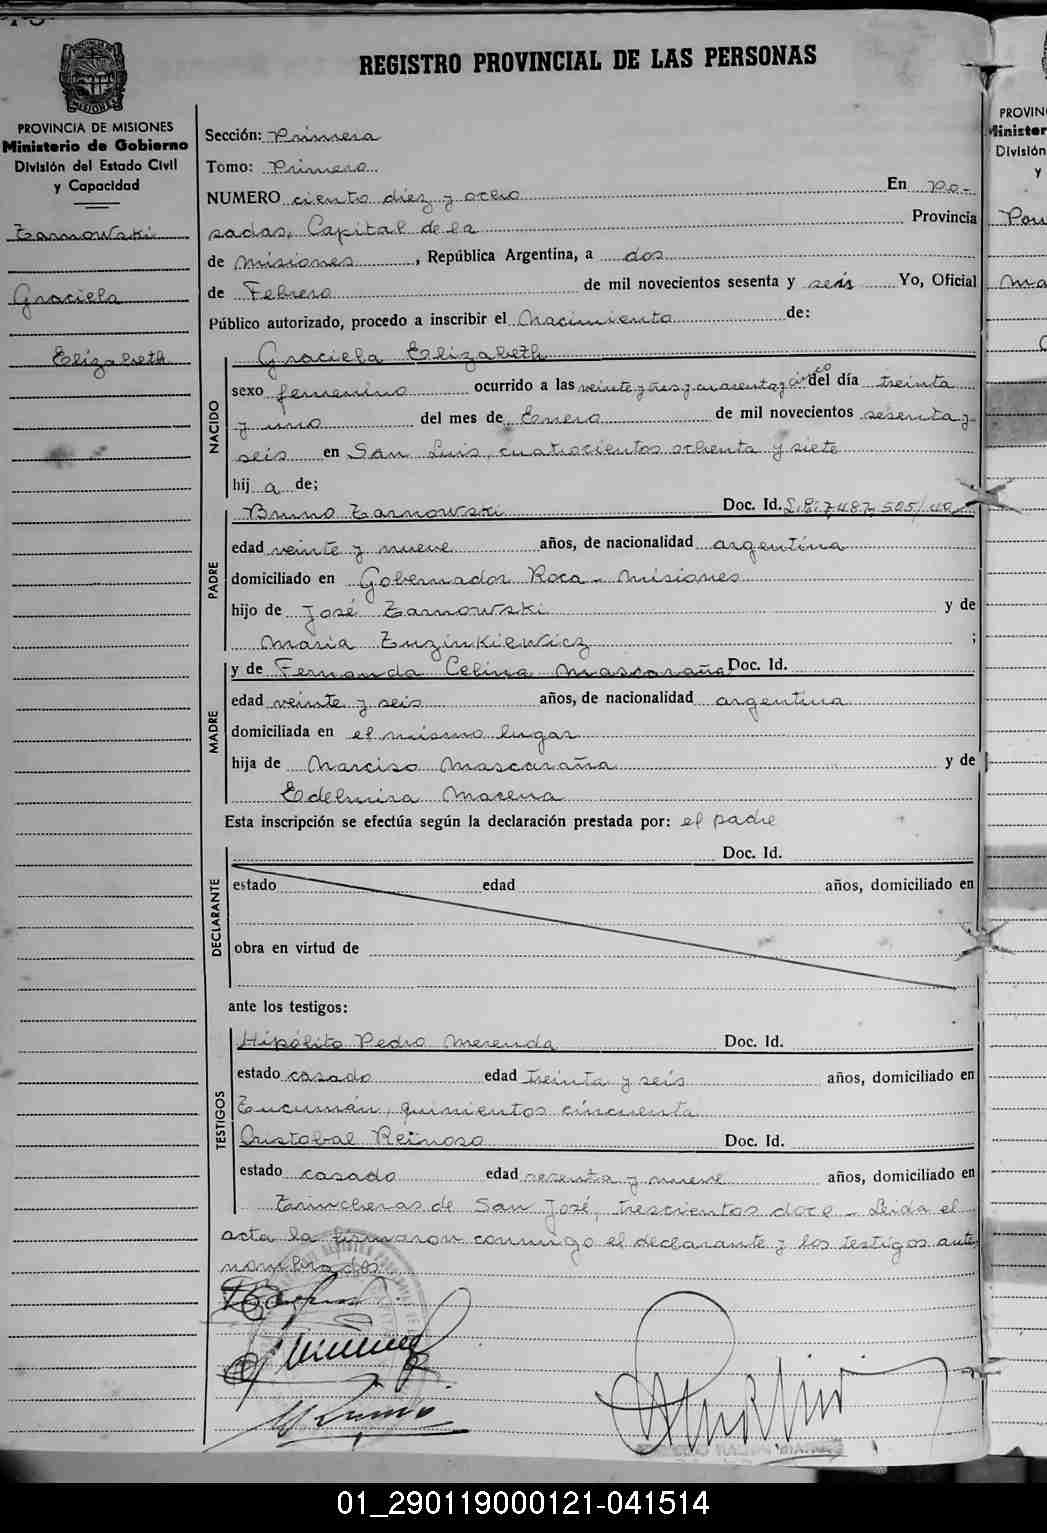 REGISTRO PROVINCIAL DE LAS PERSONAS
PROVINCIA DE MISIONES
Ministerio de Gobierno
División del Estado Civil
y Capacidad
Zarnowski
Graciela
Elizabeth
Sección: Primera
Tomo: Primero
NUMERO ciento diez y ocho En Po-
sadas, Capital de la Provincia
de Misiones, República Argentina, a dos
de Febrero de mil novecientos sesenta y seis Yo, Oficial
Público autorizado, procedo a inscribir el Nacimiento de:
NACIDO
Graciela Elizabeth
sexo femenino ocurrido a las veinte y tres y cuarenta y cinco del día treinta
y uno del mes de Enero de mil novecientos sesenta y
seis en San Luis, cuatrocientos ochenta y siete
hij a de;
PADRE
Bruno Zarnowski Doc. Id.
edad veinte y nueve años, de nacionalidad argentina
domiciliado en Gobernador Roca - Misiones
hijo de José Zarnowski y de
María Zuzinkiewicz ;
MADRE
y de Fernanda Celina Mascaraña Doc. Id.
edad veinte y seis años, de nacionalidad argentina
domiciliada en el mismo lugar
hija de Narciso Mascaraña y de
Edelmira Macena
Esta inscripción se efectúa según la declaración prestada por: el padre
DECLARANTE
Doc. Id.
estado edad años, domiciliado en
obra en virtud de
ante los testigos:
TESTIGOS
Hipólito Pedro Merenda Doc. Id.
estado casado edad treinta y seis años, domiciliado en
Tucumán, quinientos cincuenta
Cristobal Reinoso Doc. Id.
estado casado edad sesenta y nueve años, domiciliado en
Trincheras de San José, trescientos doce - Leída el
acta la firmaron conmigo el declarante y los testigos ante
nombrados.
PROVIN
Minister
División
y
01_290119000121-041514